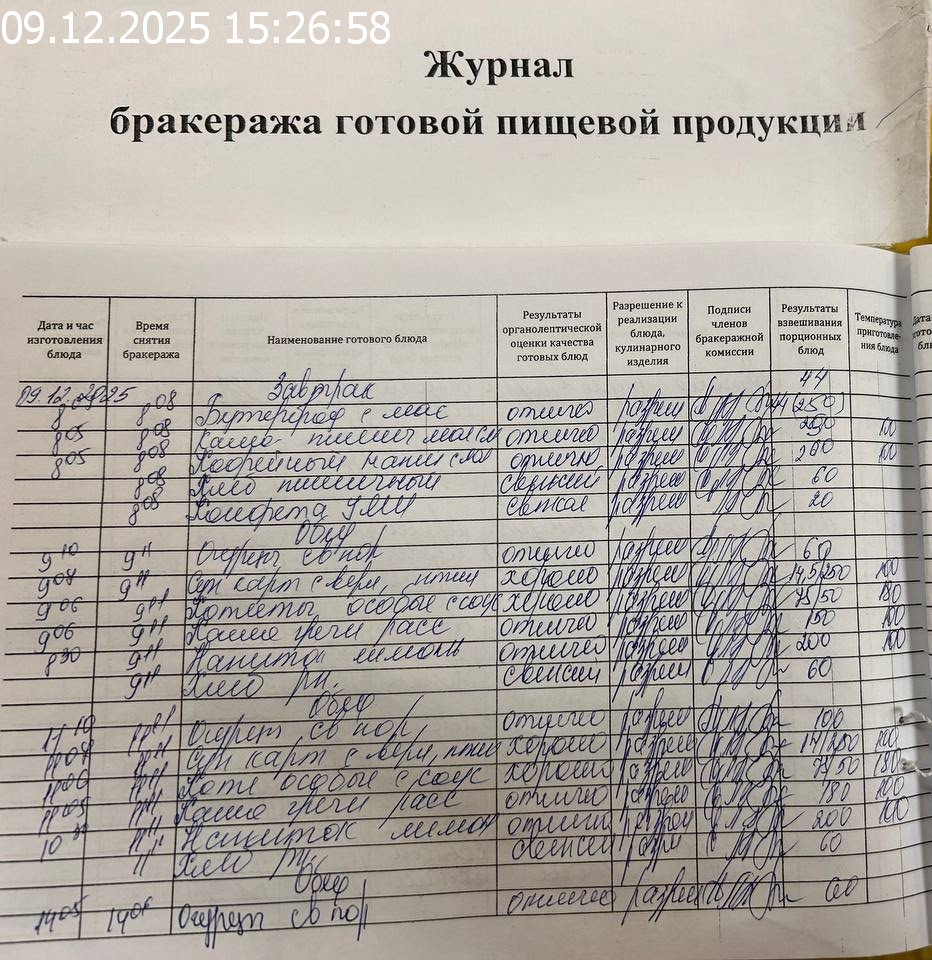 09.12.2025 15:26:58
Журнал
бракеража готовой пищевой продукции
Дата и час изготовления блюда
Время снятия бракеража
Наименование готового блюда
Результаты органолептической оценки качества готовых блюд
Разрешение к реализации блюда, кулинарного изделия
Подписи членов бракеражной комиссии
Результаты взвешивания порционных блюд
Температура приготовле-ния блюда
09.12.2025 Завтрак 44
8 08 Бутерброд с мас отлично разреш
8 05 8 08 Каша пшенич отлично разреш 100
8 05 8 08 Кофейный напи отлично разреш 200 100
8 08 Хлеб пшеничный разреш 60
8 08 Конфета разреш 20
Обед
9 10 9 11 Огурец св пор отлично разреш 60
9 08 9 11 Суп карт с верм, птиц хорошо разреш 100
9 06 9 11 Котлеты особые с соус хорошо разреш 75/50 180
9 06 9 11 Каша греч расс отлично разреш 150 100
8 30 9 11 Напиток лимон отлично разреш 200 100
9 11 Хлеб рж. разреш 60
Обед
11 10 11 11 Огурец св пор отлично разреш 100
11 11 Суп карт с верм, птиц хорошо разреш
11 11 Котл особые с соус хорошо разреш 75/50 180
11 05 11 11 Каша греч расс отлично разреш 180 100
11 11 Напиток лимон отлично разреш 200 100
11 Хлеб рж разр 60
Обед
14 05 14 06 Огурец св пор отлично разреш 60